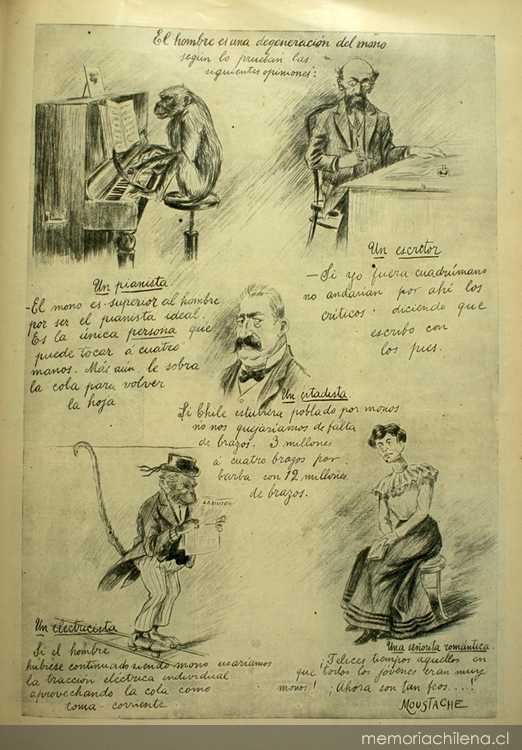 El hombre es una degeneración del mono
según lo prueban las
siguientes opiniones:
Un pianista
-El mono es superior al hombre
por ser el pianista ideal.
Es la única persona que
puede tocar á cuatro
manos. Más aún, le sobra
la cola para volver
la hoja
Un escritor
-Si yo fuera cuadrúmano
no andarían por ahí los
críticos diciendo que
escribo con
los pies.
Un estadista
Si Chile estubiera poblado por monos
no nos quejaríamos de falta
de brazos. 3 millones
á cuatro brazos por
barba son 12 millones
de brazos.
Un electricista
Si el hombre
hubiese continuado siendo mono usaríamos
la tracción eléctrica individual
aprovechando la cola como
toma-corriente
Una señorita romántica.
¡Felices tiempos aquellos en
que todos los jóvenes eran muy
monos! ¡Ahora son tan feos....!
MOUSTACHE
memoriachilena.cl